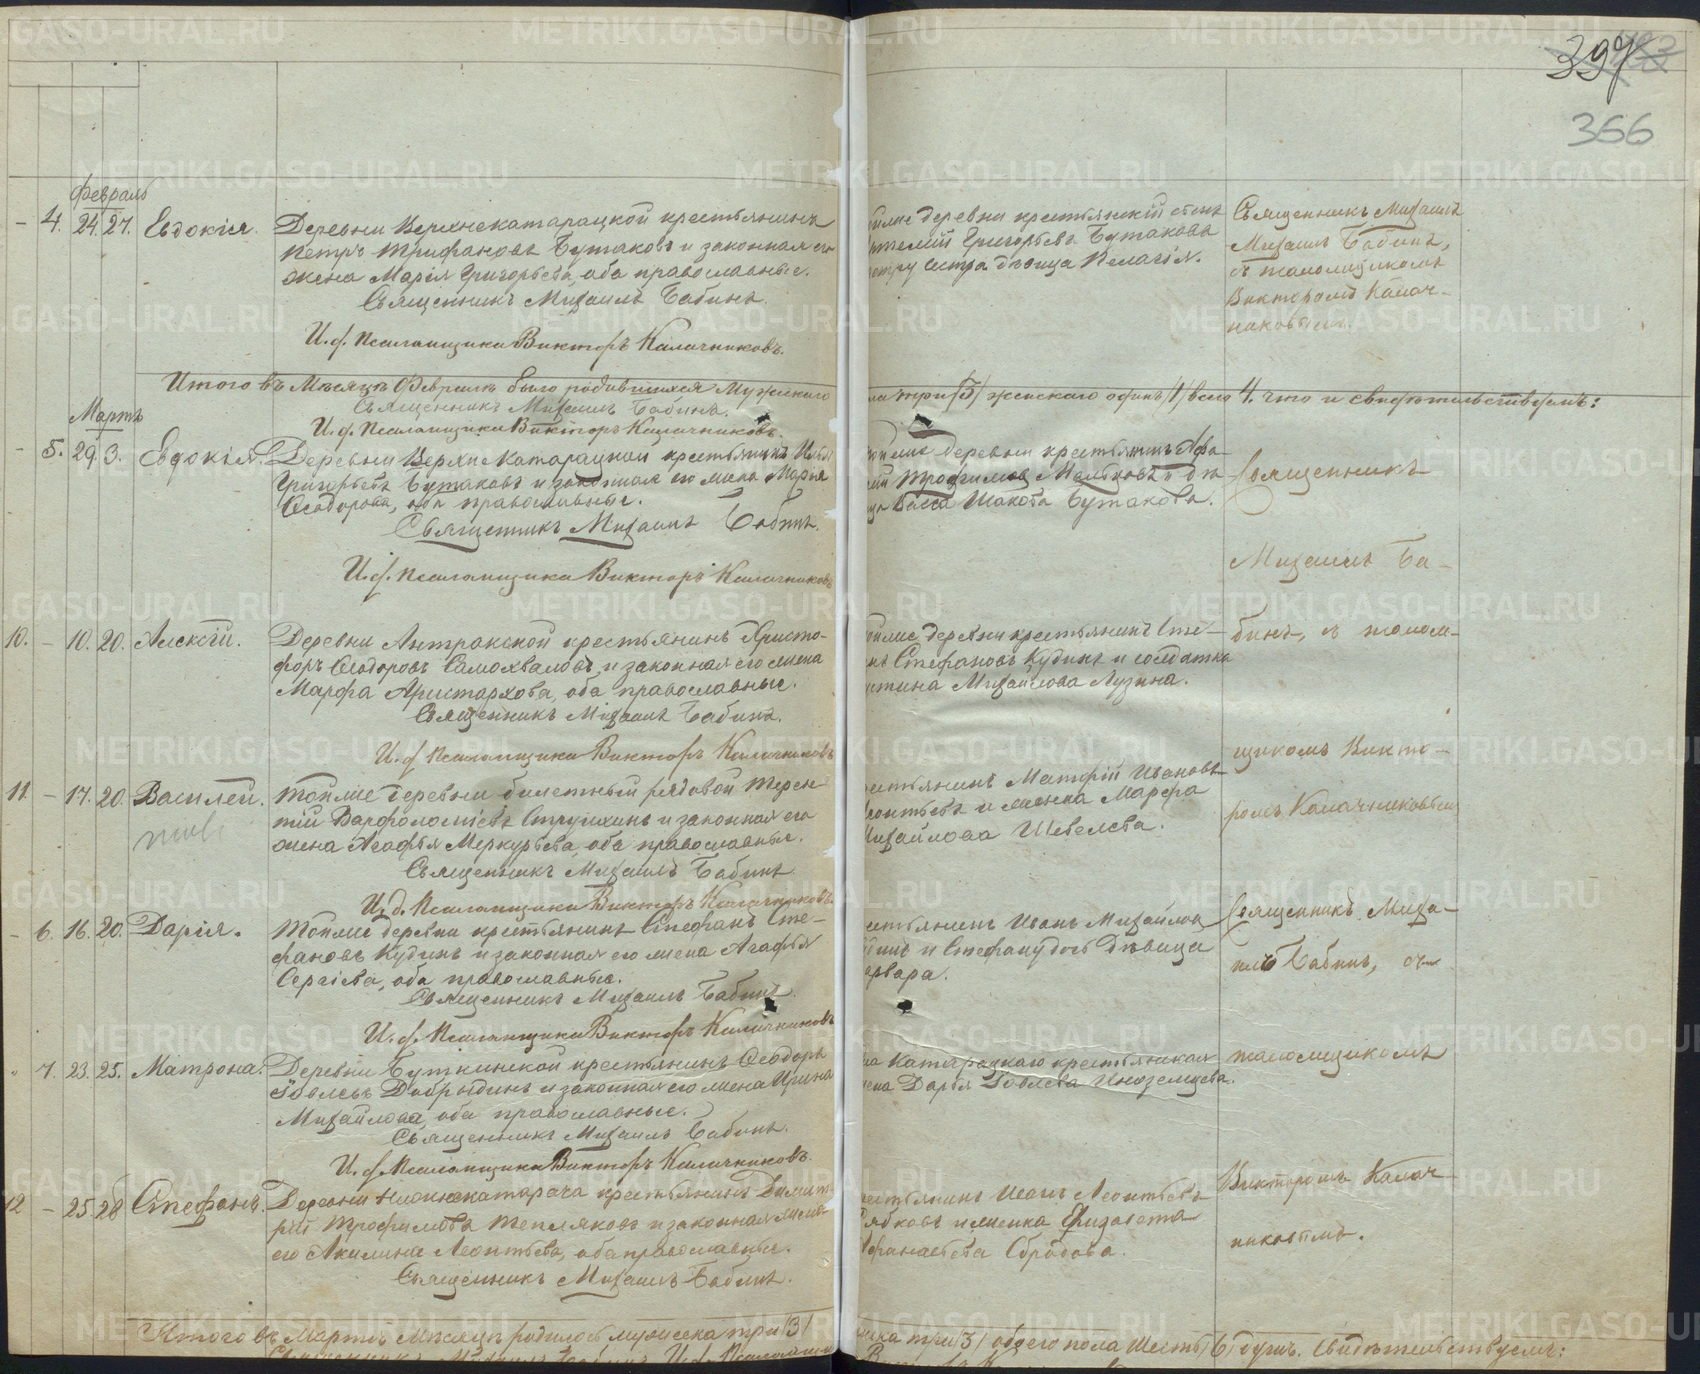 397
366
Февраль
– 4. 24. 27. Евдокія. Деревни Верхнекатарацкой крестьянинъ
Петръ Трифановъ Бутаковъ и законная его
жена Марія Григорьева, оба православные.
Священникъ Михаилъ Бабинъ.
И. д. Псаломщика Викторъ Калачниковъ.
деревни крестьянскій сынъ
Григорьевъ Бутаковъ
сестра дѣвица Пелагія.
Священникъ Михаилъ
Михаилъ Бабинъ,
съ псаломщикомъ
Викторомъ Калач-
никовымъ.
Итого въ Мѣсяцѣ Февралѣ было родившихся Мужескаго
три /3/ женскаго одинъ /1/ всего 4. что и свидѣтельствуемъ:
Священникъ Михаилъ Бабинъ.
И. д. Псаломщика Викторъ Калачниковъ.
Мартъ
– 5. 29. 3. Евдокія. Деревни Верхнекатарацкой крестьянинъ
Григорьевъ Бутаковъ и законная его жена Марія
Ѳеодорова, оба православные.
Священникъ Михаилъ Бабинъ.
И. д. Псаломщика Викторъ Калачниковъ
деревни крестьянинъ
Трофимовъ и дѣ-
Бутакова.
Священникъ
Михаилъ Ба-
10. – 10. 20. Алексій. Деревни крестьянинъ Христо-
форъ Ѳеодоровъ Самохваловъ и законная его жена
Марфа Аристархова, оба православные.
Священникъ Михаилъ Бабинъ.
И. д. Псаломщика Викторъ Калачниковъ
деревни крестьянинъ Сте-
Стефановъ Кудинъ и солдатка
Михайлова Лузина.
бинъ, съ псалом-
щикомъ Викто-
11. – 17. 20. Василій. Тойже деревни билетный рядовой Терен-
тій Варфоломѣевъ и законная его
жена Агафья Меркурьева, оба православные.
Священникъ Михаилъ Бабинъ
И. д. Псаломщика Викторъ Калачниковъ.
Ивановъ
и женка Марфа
Михайлова Шевелева.
ромъ Калачниковымъ
– 6. 16. 20. Дарія. Тойже деревни крестьянинъ Стефанъ Сте-
фановъ Кудинъ и законная его жена Агафья
Сергіева, оба православные.
Священникъ Михаилъ Бабинъ.
И. д. Псаломщика Викторъ Калачниковъ
Иванъ Михайловъ
и Стефану дочь дѣвица
Священникъ Миха-
илъ Бабинъ, съ
7. 23. 25. Матрона. Деревни Буткинской крестьянинъ Ѳеодоръ
Іовлевъ Добрыдинъ и законная его жена Ирина
Михайлова, оба православные.
Священникъ Михаилъ Бабинъ.
И. д. Псаломщика Викторъ Калачниковъ.
Катарацкаго крестьянская
Дарья Іовлева Иноземцева.
псаломщикомъ
12 – 25 28 Стефанъ. Деревни Нижнекатарача крестьянинъ Димит-
рій Трофимовъ Тепляковъ и законная жена
его Акилина Леонтьева, оба православные.
Священникъ Михаилъ Бабинъ.
Иванъ Леонтьевъ
и женка Елизавета
Афанасьева
Викторомъ Калач-
никовымъ.
Итого въ Мартѣ Мѣсяцѣ родилось мужеска три /3/
три /3/ обоего пола Шесть /6/ душъ. Свидѣтельствуемъ: